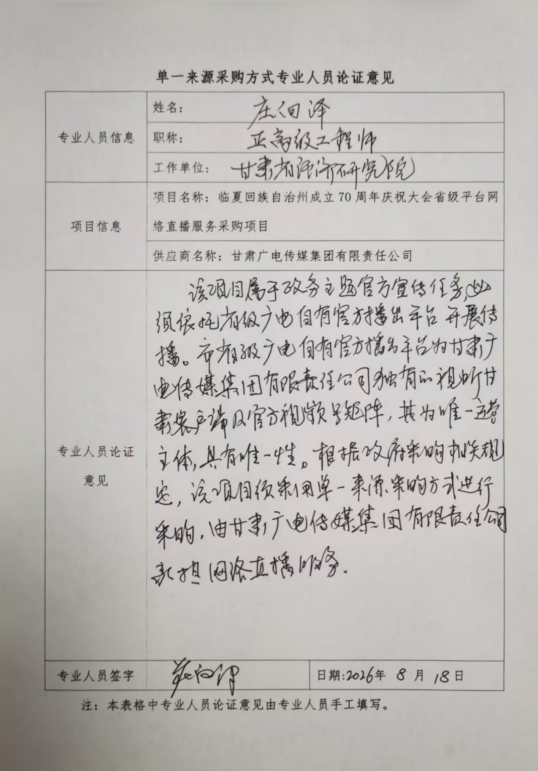 单一来源采购方式专业人员论证意见
专业人员信息
姓名：
庄向泽
职称：
正高级工程师
工作单位：
甘肃省经济研究院
项目信息
项目名称：临夏回族自治州成立 70 周年庆祝大会省级平台网
络直播服务采购项目
供应商名称：甘肃广电传媒集团有限责任公司
专业人员论证
意见
该项目属于政务主题官方宣传任务，必
须依托省级广电自有官方播出平台开展传
播。而省级广电自有官方播出平台为甘肃广
电传媒集团有限责任公司独有的视听甘
肃客户端及官方视频号矩阵，其为唯一运营
主体，具有唯一性。根据政府采购相关规
定，该项目须采用单一来源采购方式进行
采购，由甘肃广电传媒集团有限责任公司
承担网络直播服务。
专业人员签字
日期：2026年 8 月 18日
注：本表格中专业人员论证意见由专业人员手工填写。